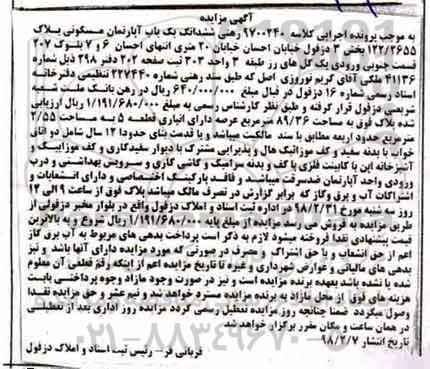 آگهی مزایده
به موجب پرونده اجرایی کلاسه ۹۷۰۰۲۴۰ رهنی ششدانگ یک باب آپارتمان مسکونی پلاک
۱۲۲/۲۶۵۵ بخش ۳ دزفول خیابان احسان خیابان ۲۰ متری انتهای احسان ۶ و ۷ بلوک ۲۰۷
قسمت جنوبی ورودی یک گل های رز طبقه ۳ واحد ۳۰۳ ثبت صفحه ۲۰۲ دفتر ۲۹۸ ذیل شماره
۴۱۱۳۶ ملکی آقای کریم نوروزی اصل که طبق سند رهنی شماره ۲۲۷۴۴۰ تنظیمی دفترخانه
اسناد رسمی شماره ۱۶ دزفول در قبال مبلغ ۶۴۰/۰۰۰/۰۰۰ ریال در رهن بانک ملت شعبه
شریعتی دزفول قرار گرفته و طبق نظر کارشناس رسمی به مبلغ ۱/۱۹۱/۶۸۰/۰۰۰ ریال ارزیابی
شده پلاک فوق به مساحت ۸۹/۳۶ مترمربع عرصه دارای انباری قطعه ۵ به مساحت ۲/۵۵
مترمربع حدود اربعه مطابق با سند مالکیت میباشد و با قدمت بنای حدودا ۱۲ سال شامل دو اتاق
خواب با بدنه سفید و کف موزائیک هال و پذیرایی مشترک با دیوار سفیدکاری و کف موزاییک و
آشپزخانه اپن با کابینت فلزی با کف و بدنه سرامیک و کاشی کاری و سرویس بهداشتی و درب
ورودی واحد آپارتمان ضدسرقت میباشد و فاقد پارکینگ اختصاصی و دارای انشعابات و
اشتراکات آب و برق وگاز که برابر گزارش در تصرف مالک میباشد پلاک فوق از ساعت ۹ الی ۱۲
روز سه شنبه مورخ ۹۸/۲/۳۱ در اداره ثبت اسناد و املاک دزفول واقع در بلوار مخبر دزفولی از
طریق مزایده به فروش می رسد مزایده از مبلغ پایه ۱/۱۹۱/۶۸۰/۰۰۰ ریال شروع و به بالاترین
قیمت پیشنهادی نقدا فروخته میشود لازم به ذکر است پرداخت بدهی های مربوط به آب برق گاز
اعم از حق انشعاب و یا حق اشتراک و مصرف در صورتی که مورد مزایده دارای آنها باشد و نیز
بدهی های مالیاتی و عوارض شهرداری و غیره تا تاریخ مزایده اعم از اینکه رقم قطعی آن معلوم
شده یا نشده باشد بعهده برنده مزایده است و نیز در صورت وجود مازاد وجوه پرداختی بابت
هزینه های فوق از محل مازاد به برنده مزایده مسترد خواهد شد و نیم عشر و حق مزایده نقدا
وصول میگردد ضمنا چنانچه روز مزایده تعطیل رسمی گردد مزایده روز اداری بعد از تعطیلی
در همان ساعت و مکان مقرر برگزار خواهد شد
تاریخ انتشار ۹۸/۲/۷
قربانی فر - رئیس ثبت اسناد و املاک دزفول
۰۲۱-۸۸۳۴۹۶۷۰